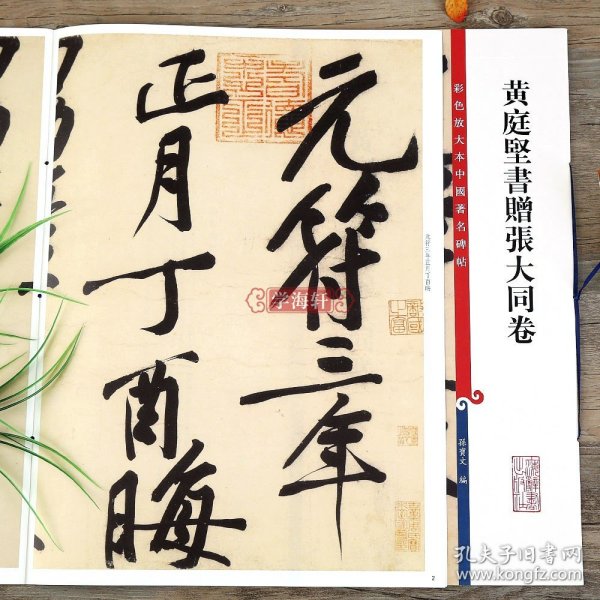 元符三年
正月丁酉晦
元符三年正月丁酉晦
学海轩
2
彩色放大本中國著名碑帖
黄庭堅書贈張大同卷
孫寶文 編
孔夫子旧书网
www.kongfz.com